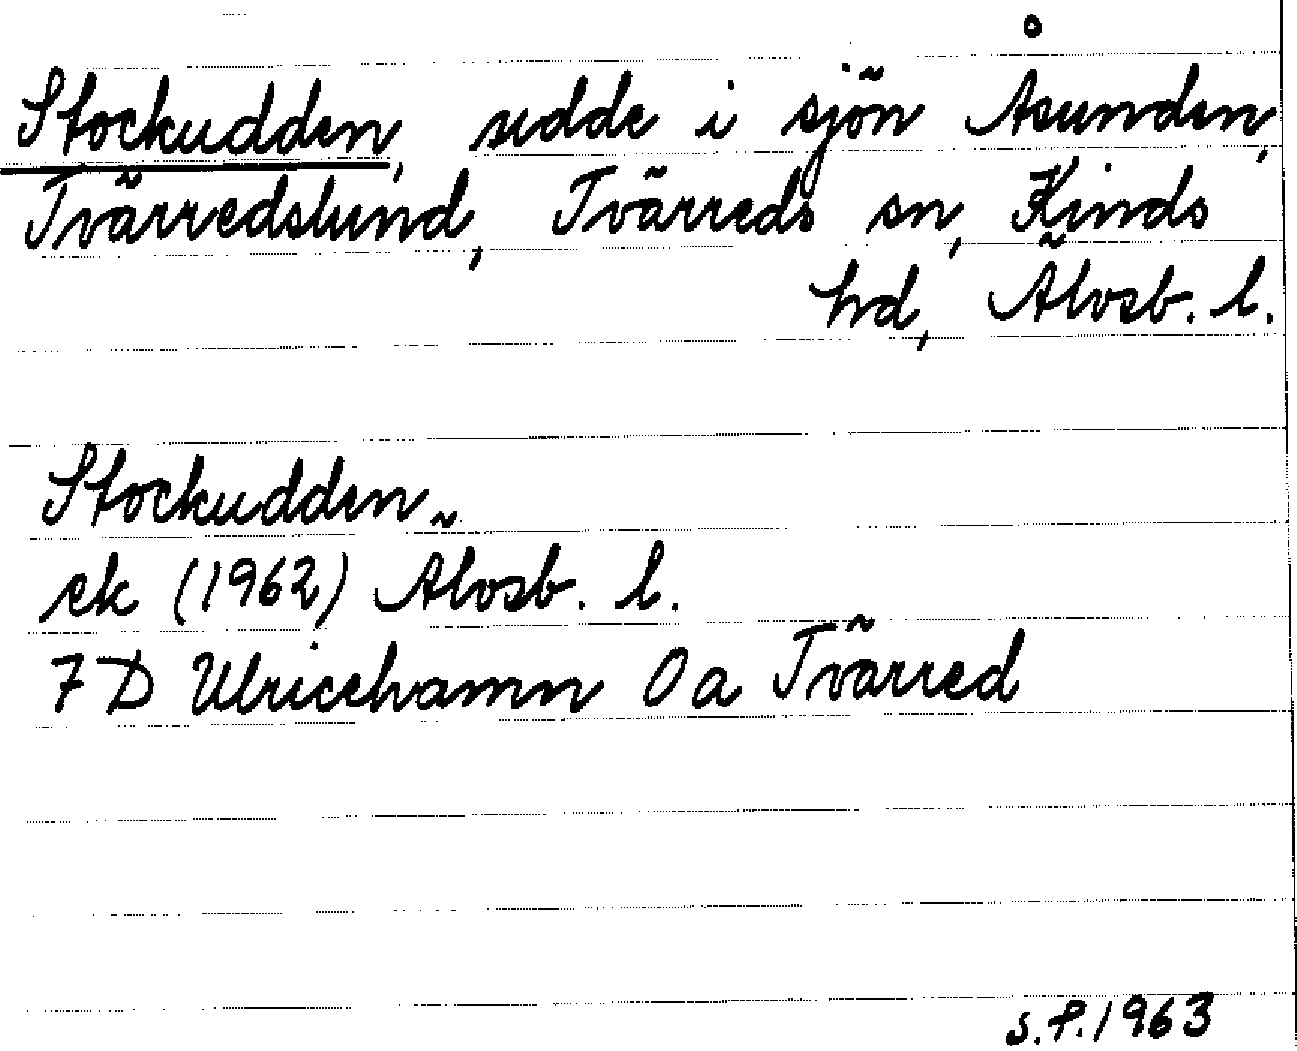 Stockudden, udde i sjön Åsunden,
Tvärredslund, Tvärreds sn, Kinds
hd, Älvsb. l.
Stockudden
ek (1962) Älvsb. l.
7 D Ulricehamn 0 a Tvärred
S.P. 1963